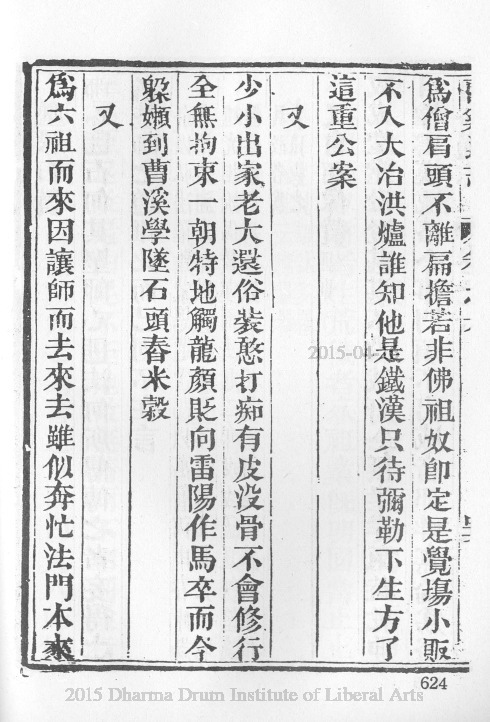 為僧肩頭不離扁擔若非佛祖奴即定是覺場小販
不入大冶洪爐誰知他是鐵漢只待彌勒下生方了
這重公案
又
少小出家老大還俗裝憨打痴有皮沒骨不會修行
全無拘束一朝特地觸龍顏貶向雷陽作馬卒而今
躲嬾到曹溪學墜石頭舂米穀
又
為六祖而來因讓師而去來去雖似奔忙法門本來
2015-04
624
2015 Dharma Drum Institute of Liberal Arts